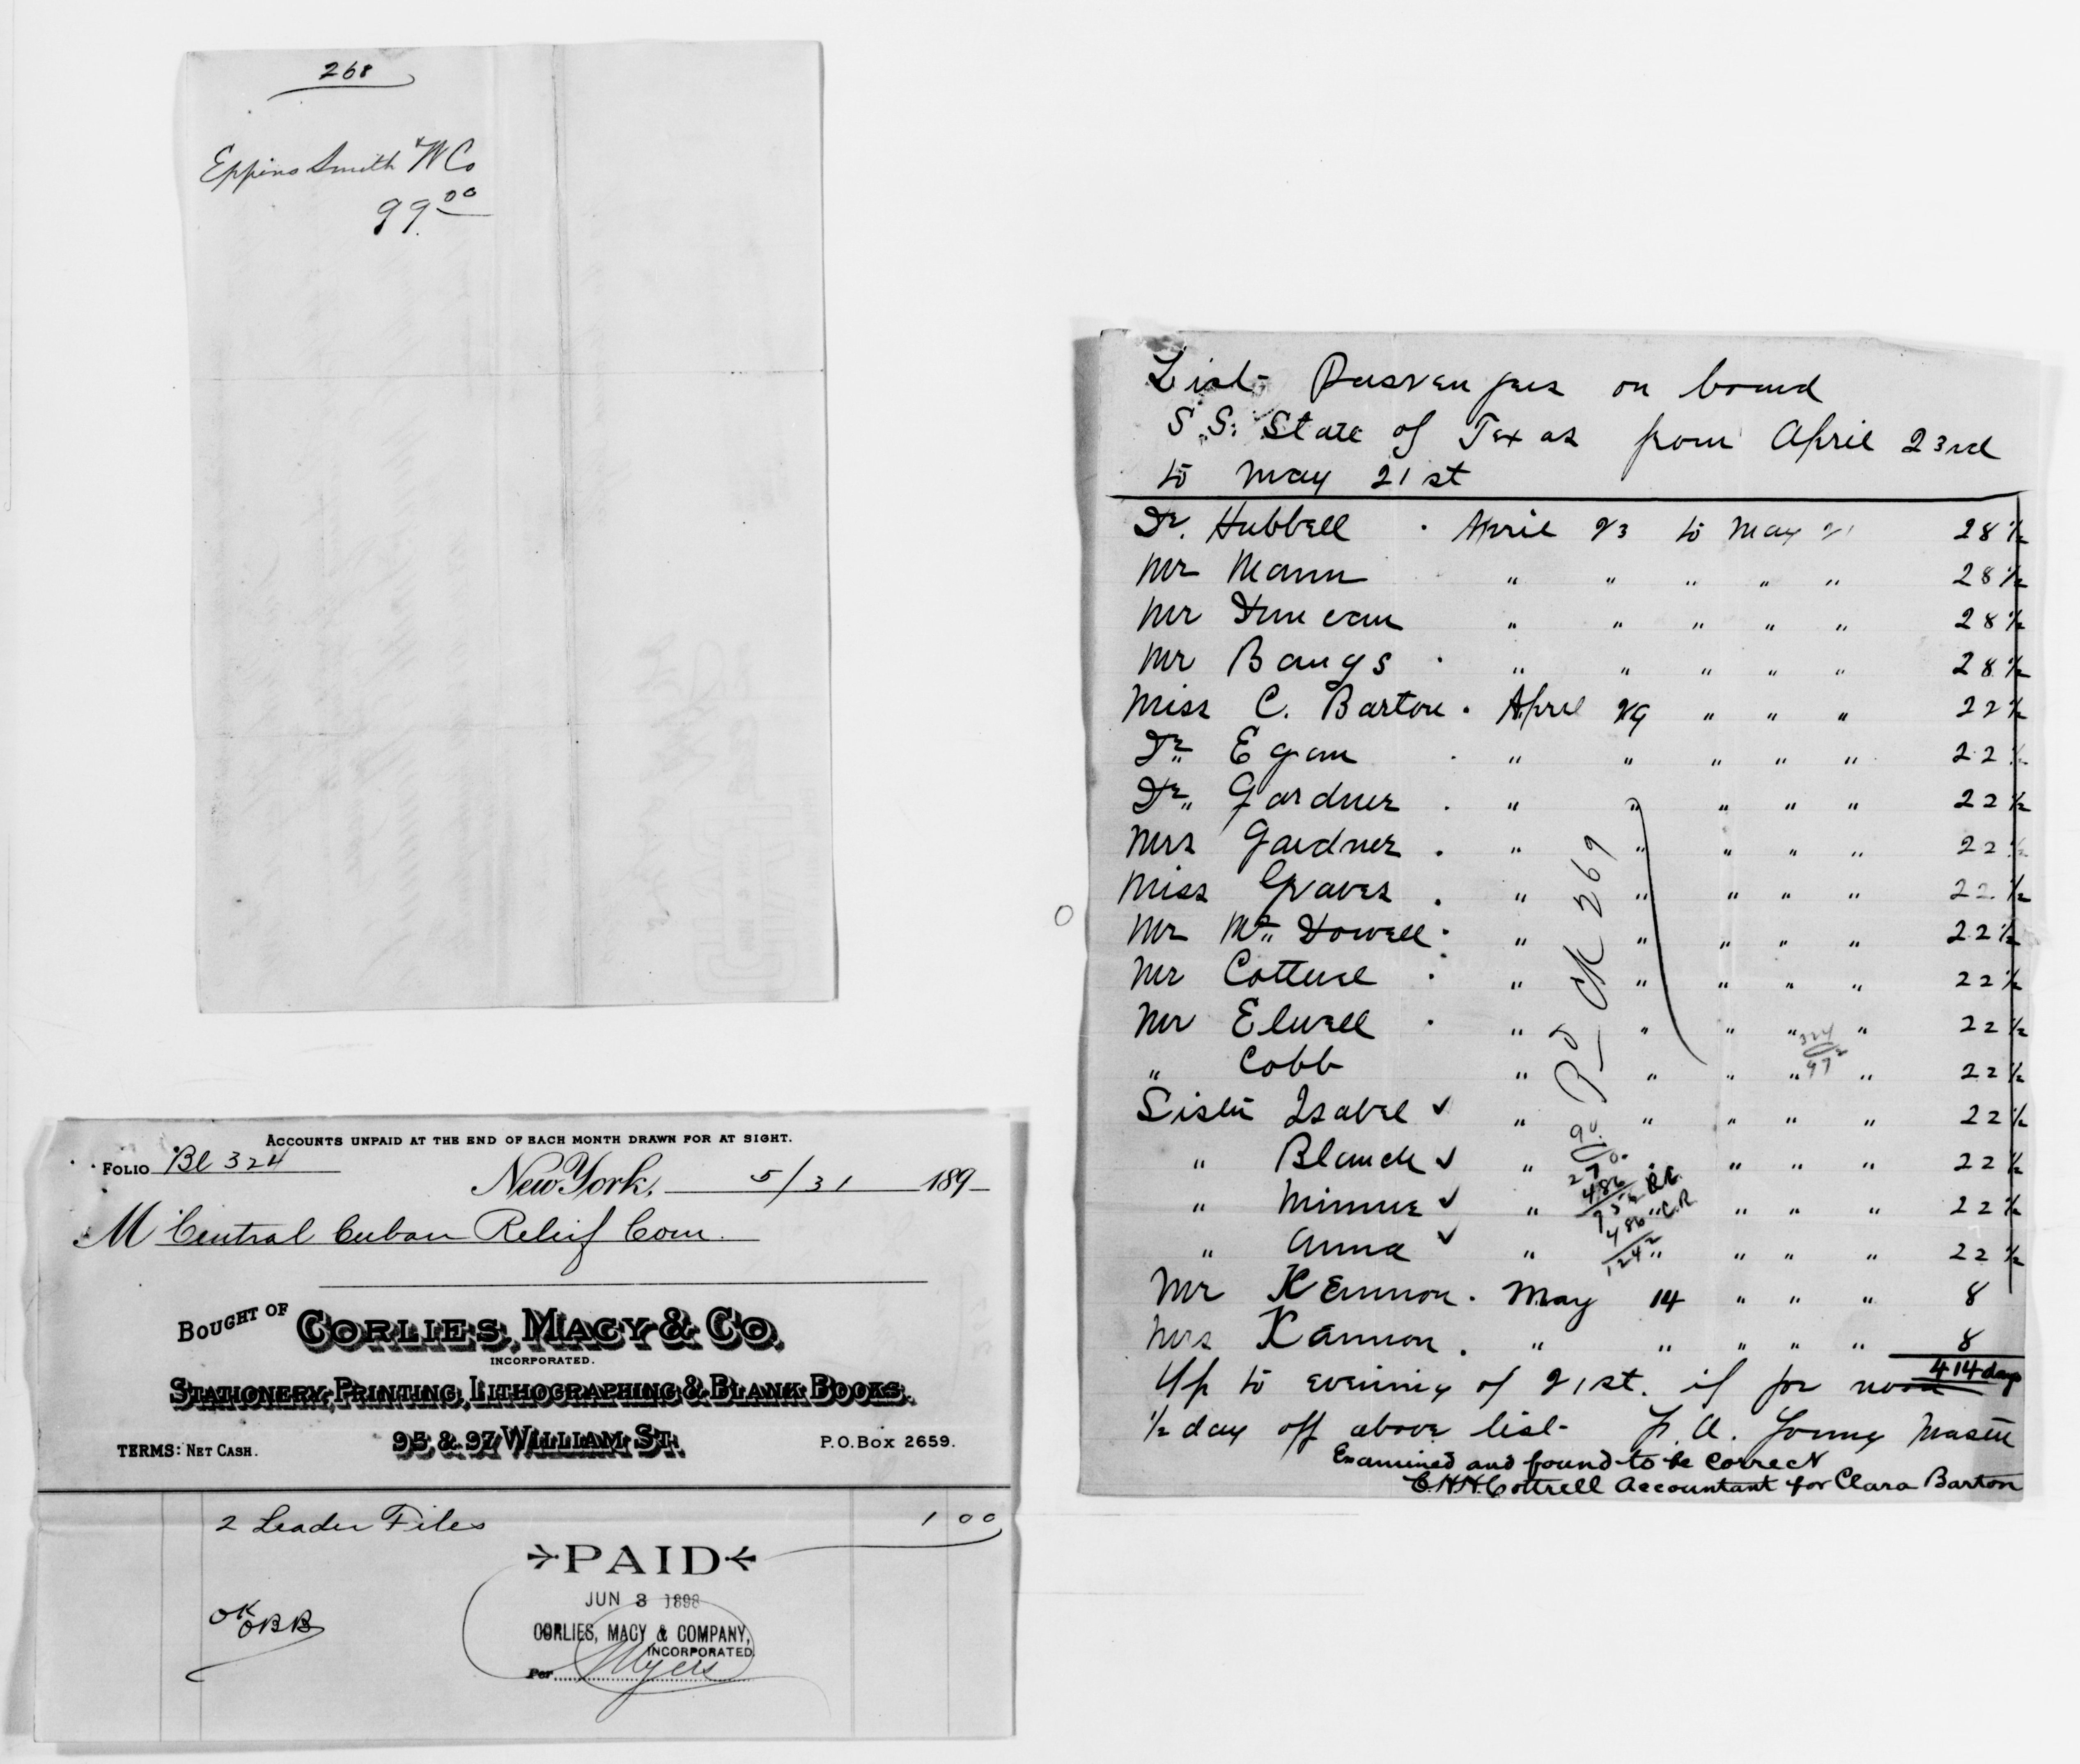 268
Eppins Smith & W Co
99.00
Accounts unpaid at the end of each month drawn for at sight.
Folio Bl 324
New York, 5/31 189
M Central Cuban Relief Com.
Bought of Corlies, Macy & Co.
Incorporated.
Stationery, Printing, Lithographing & Blank Books.
95 & 97 William St.
Terms: Net Cash.
P.O. Box 2659.
2 Leader Files 1 00
PAID
JUN 3 1898
CORLIES, MACY & COMPANY,
INCORPORATED.
Per Myers
OK
OBB
List Passengers on board
S.S. State of Texas from April 23rd
to May 21st
Dr. Hubbell . April 23 to May 21 28 1/2
Mr Mann " " " " " 28 1/2
Mr Duncan " " " " " 28 1/2
Mr Bangs . " " " " " 28 1/2
Miss C. Barton . April 29 " " " 22 1/2
Dr. Egan . " " " " " 22 1/2
Dr. Gardner . " " " " " 22 1/2
Mrs Gardner . " " " " " 22 1/2
Miss Graves . " " " " " 22 1/2
Mr Mc Dowell . " " " " " 22 1/2
Mr Cottrel . " " " " " 22 1/2
Mr Elwell . " " " " " 22 1/2
" Cobb " " " " " 22 1/2
Sister Isabel ✓ " " " " " 22 1/2
" Blanch ✓ " " " " " 22 1/2
" Minnie ✓ " " " " " 22 1/2
" Anna ✓ " " " " " 22 1/2
Mr Kennon . May 14 " " " 8
Mrs Kannon . " " " " " 8
414 days
Up to evening of 21st. if for noon
1/2 day off above list - F. A. Young Master
Examined and found to be correct
C.H.H. Cottrell Accountant for Clara Barton
Pd CK 269
324
972
90.
270.
486
486 C.R.
1242